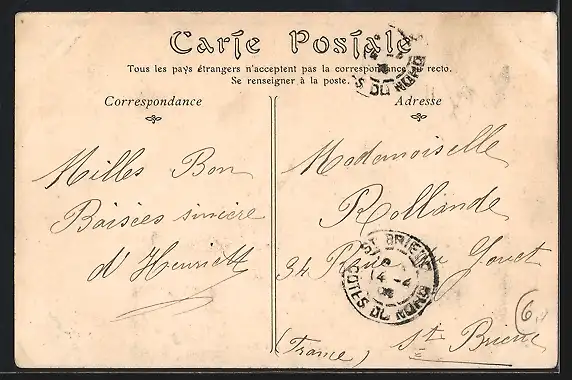 Carte Postale
Tous les pays étrangers n'acceptent pas la correspondance au recto.
Se renseigner à la poste.
Correspondance
Milles Bon
Baisées sincère
d'Henriett
Adresse
Mademoiselle
Rollande
34 Rue du Gouet
St Brieuc
(France)
ST BRIEUC
14 -2
COTES DU NORD
S DU NORD
6